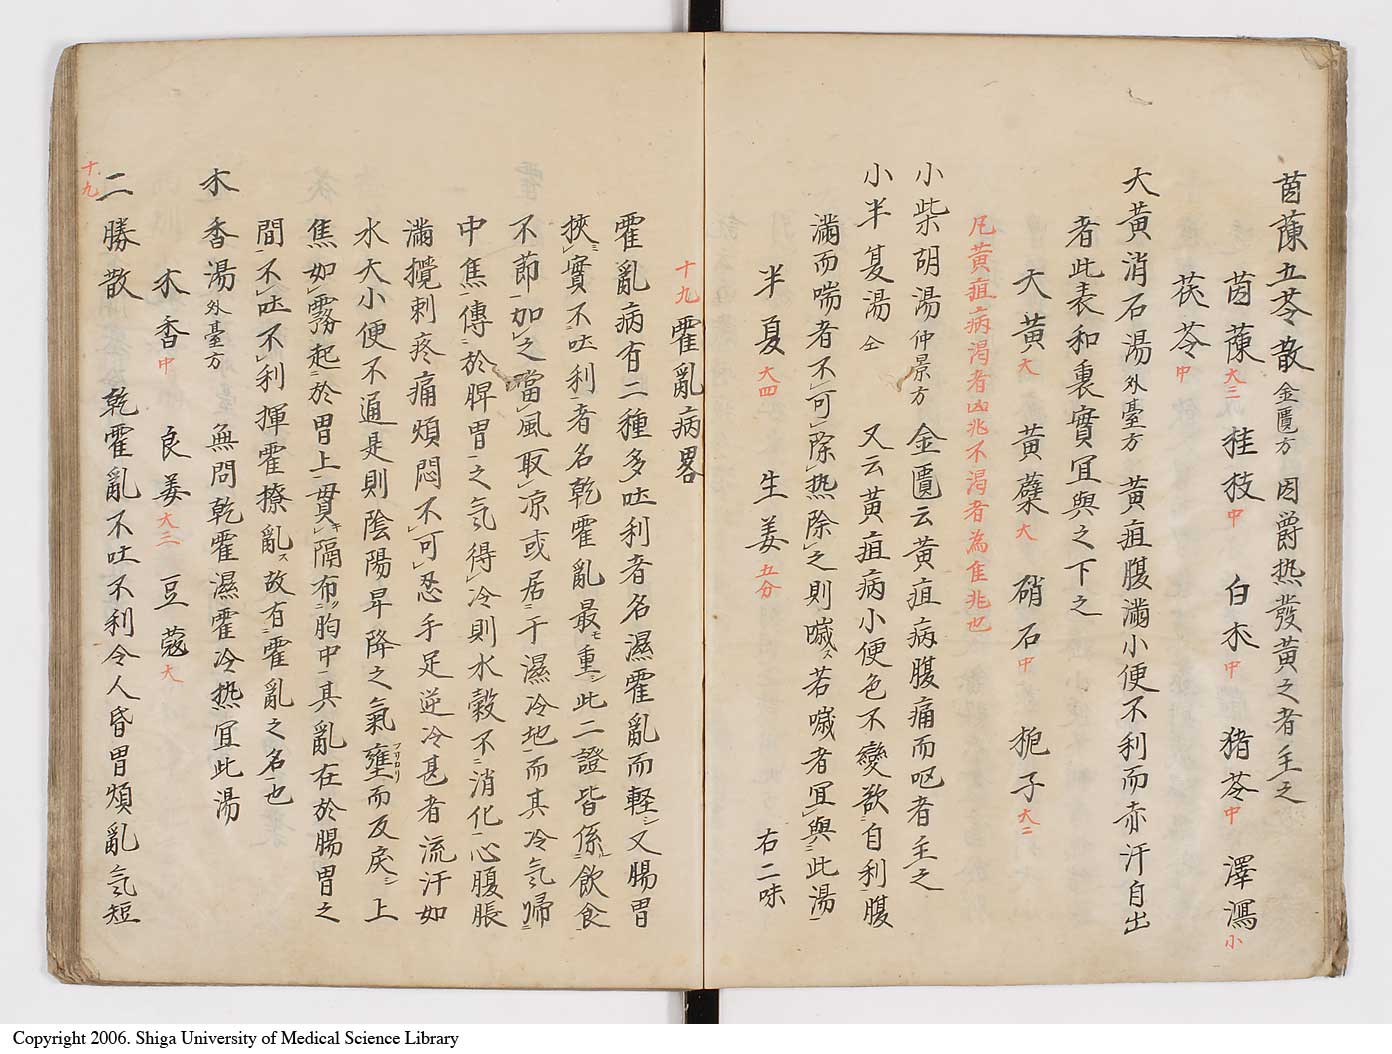 茵蔯五苓散 金匱方 因爵热發黄之者主之
茵蔯 大三 桂枝 中 白朮 中 猪苓 中 澤瀉 小
茯苓 中
大黄消石湯 外臺方 黄疸腹滿小便不利而赤汗自出
者此表和裏實宜與之下之
大黄 大 黄蘗 大 硝石 中 梔子 大二
凡黄疸病渇者凶兆不渇者為佳兆也
小柴胡湯 仲景方 金匱云黄疸病腹痛而呕者主之
小半夏湯 仝 又云黄疸病小便色不變欲自利腹
滿而喘者不可除热除之則噦若噦者宜與此湯
半夏 大四 生姜 五分 右二味
十九 霍亂病畧
霍亂病有二種多吐利者名濕霍亂而軽又腸胃
挾實不吐利者名乾霍亂最重此二證皆係飲食
不節加之當風取凉或居于濕冷地而其冷気帰
中焦傳於脾胃之気得冷則水穀不消化心腹脹
滿攪刺疼痛煩悶不可忍手足逆冷甚者流汗如
水大小便不通是則陰陽昇降之氣壅フサカリ而反戻上
焦如霧起於胃上貫隔布胸中其亂在於腸胃之
間不吐不利揮霍撩亂故有霍亂之名也
木香湯 外臺方 無問乾霍濕霍冷热宜此湯
木香 中 良姜 大三 豆蔲 大
十九
二勝散 乾霍亂不吐不利令人昏冒煩亂気短
Copyright 2006. Shiga University of Medical Science Library